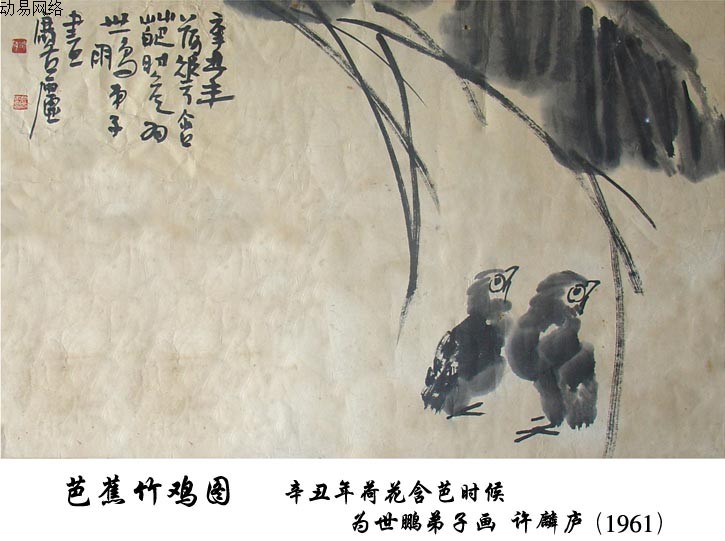 动易网络
辛丑年
荷花含
时
世鹏弟子
芭蕉竹鸡图
辛丑年荷花含芭时候
为世鹏弟子画 许麟庐 (1961)